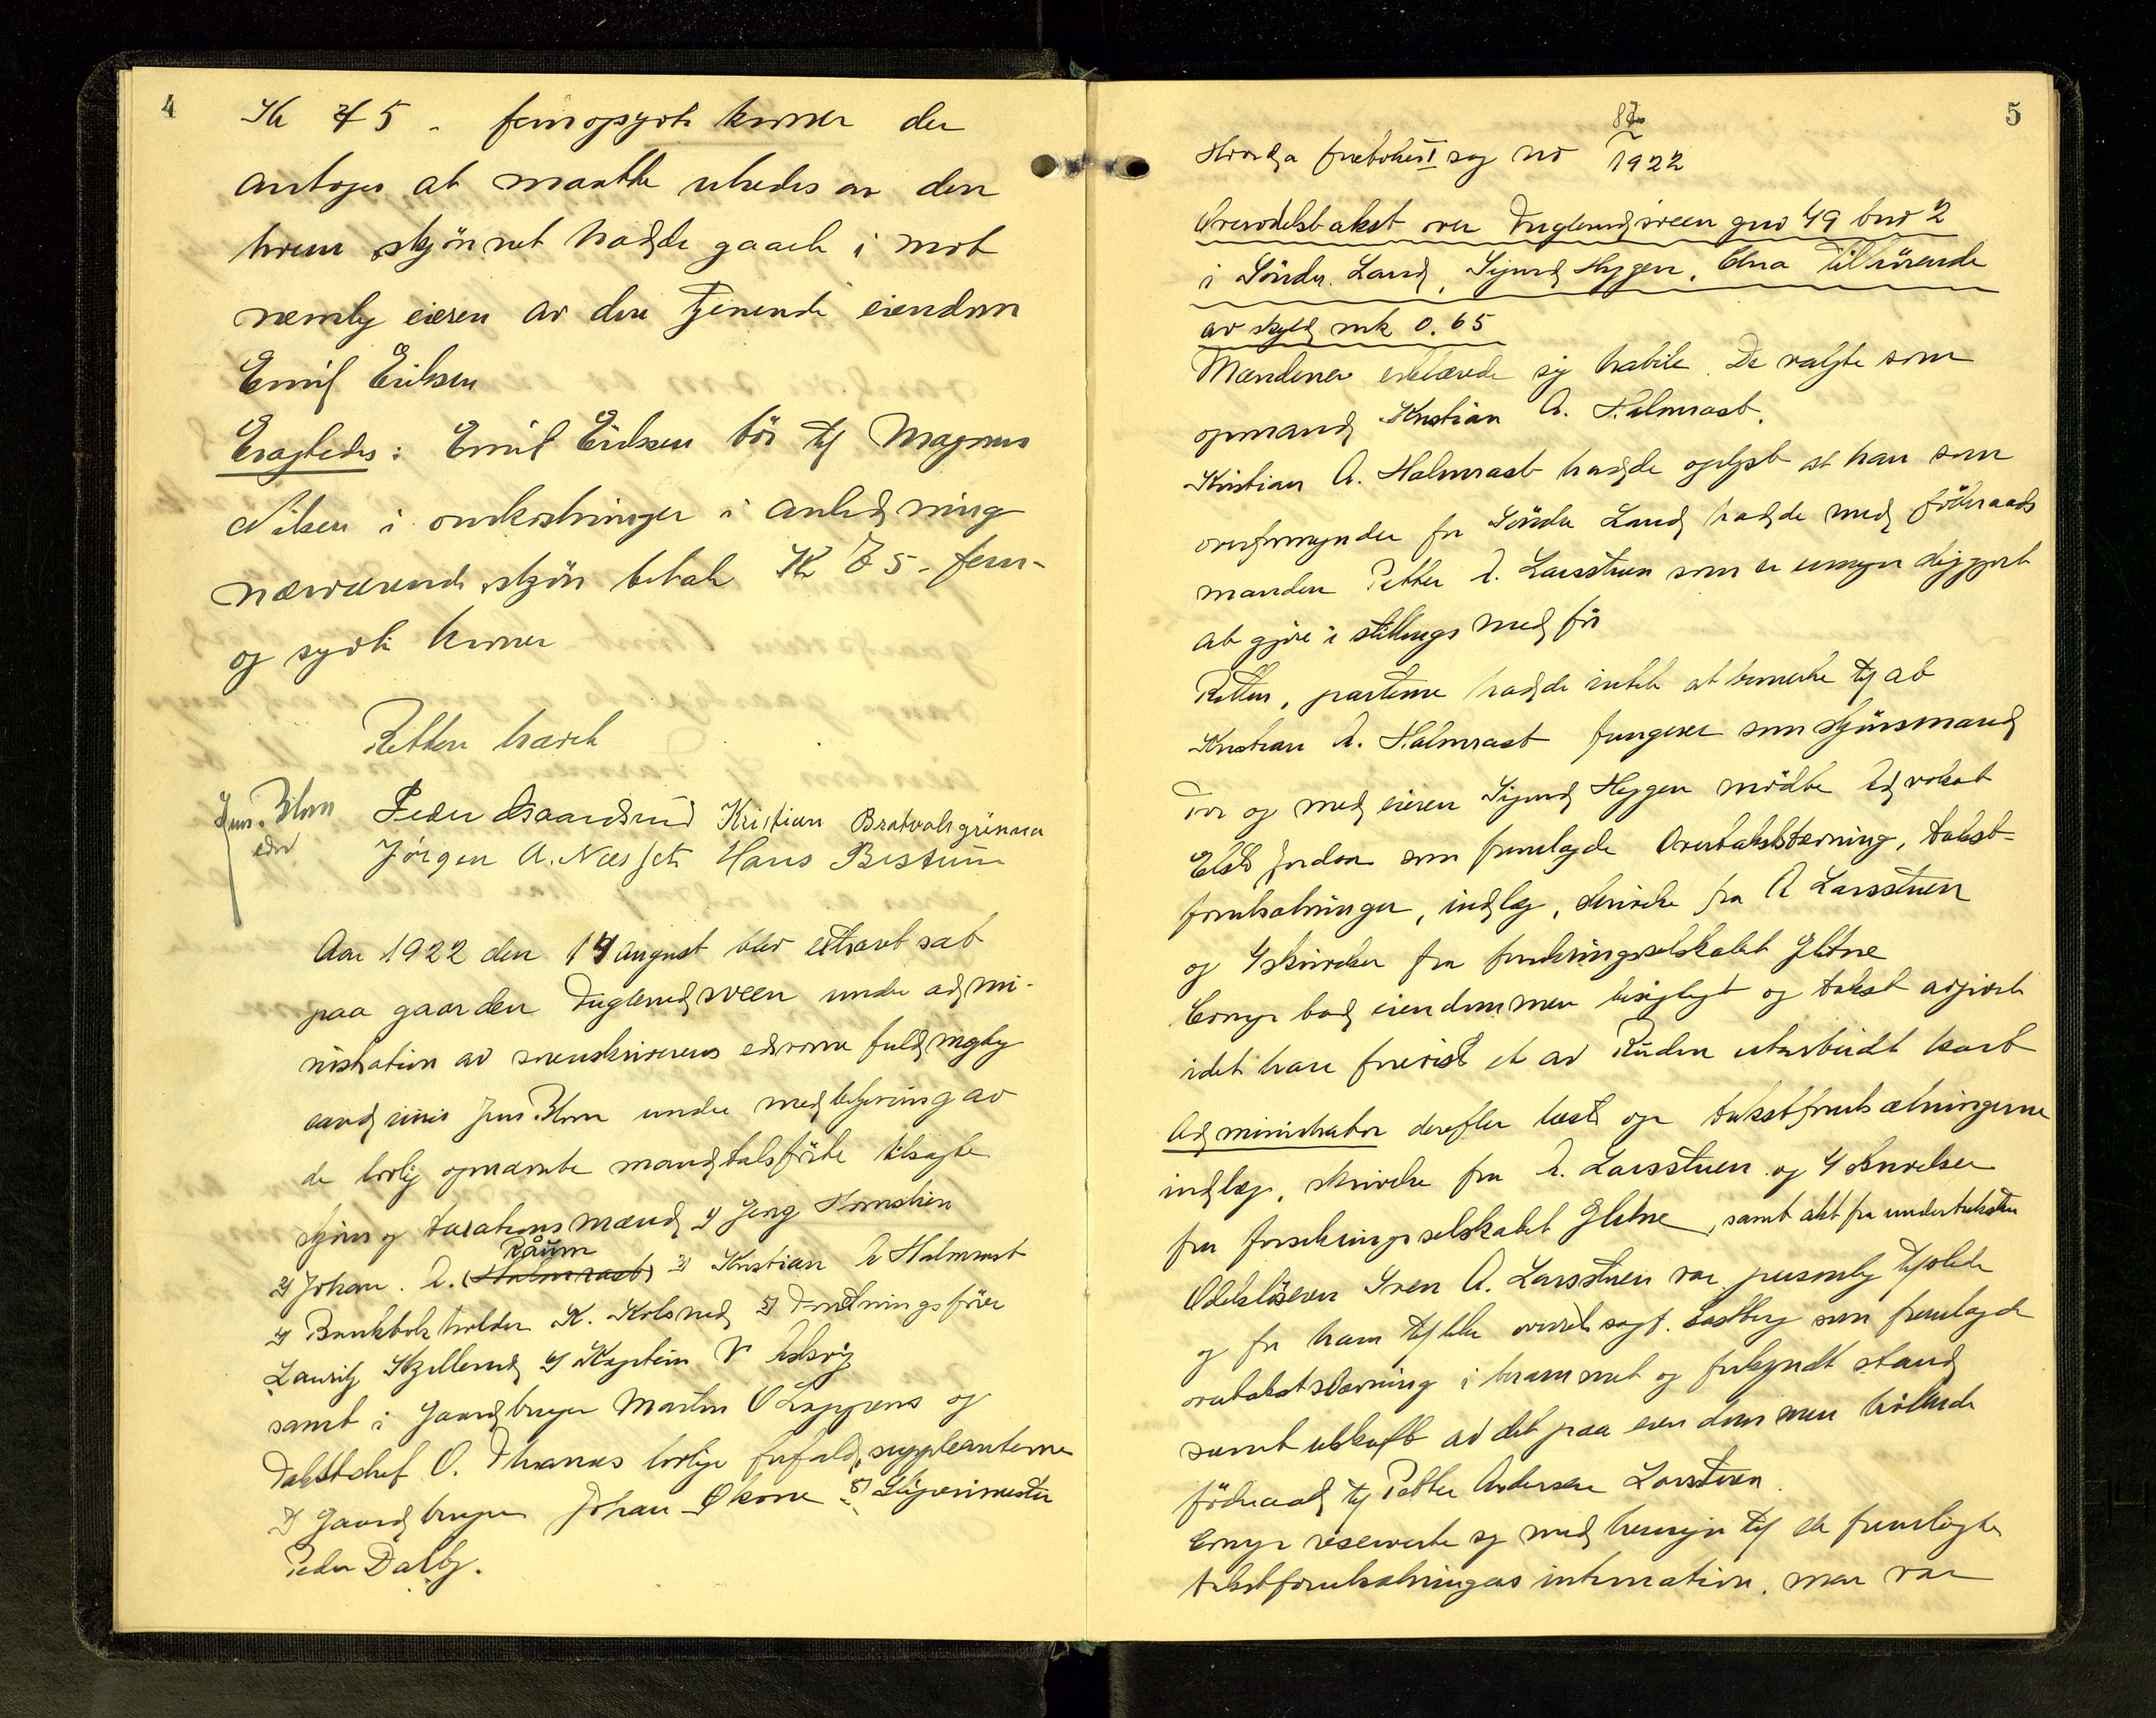 4
Kr 75 - femogsyvti kroner der
antages at maatte utredes av den
hvem skjønnet hadde gaaet i mot
nemlig eieren av den tjenende eiendom
Emil Eriksen
Eragtedes: Emil Eriksen bör til Magnus
Nilsen i omkostninger i anledning
nærværende skjön betale Kr 75 - fem-
og sytti kroner
Retten hævet
Jens. Blom Peder Kristian Bratvolsgrinna
edv Jörgen A. Næsset Hans
Aar 1922 den 14 august blev extraret sat
paa gaarden Fuglerudsveen under admi-
nistration av sorenskriverens edsvorne fuldmægtig
cand juris Jens Blom under medbetjening av
de lovlig opnævnte mandtalsförte tilsagte
skjöns og taxationsmænd 1) Georg
2) Johan. A. (Halmrast) Raum 3) Kristian A Halmrast
4) Bankbokholder K. Kolsrud 5) Forretningsförer
Lauritz Skjellerud 6) Kaptein
samt i Gaardbruger Martin O og
O. lovlige forfald, suppleanterne
7) Gaardbruger Johan Økone 8) Skipsrimester
Peder Dalby.
5
Hvorda foretokes I sag nr 87/1922
Overodelstakst over Fuglerudsveen gnr 49 bnr 2
i Söndre Land, Sigurd Heggen, Elna tilhörende
av skyld mk 0.65
Mændene erklærede sig habile. De valgte som
opmand Kristian A. Halmrast.
Kristian A. Halmrast hadde oplyst at han som
overformynder for Söndre Land hadde med föderaads
manden Petter A. Larsstuen som er umyndiggjort
at gjöre i stillings med för
Retten, parterne hadde intet at bemerke til at
Kristian A. Halmrast fungerer som skjönsmand
For og med eieren Sigurd Heggen mödte Advokat
som fremlagde Overtakststevning, takst-
forutsætninger, indlæg, skrivelse fra A Larsstuen
og 4 skrivelser fra forsikringsselskabet Glitne
Comp bad eiendommen besigtiget og takst avgivet
idet han foreviste et av Ruden utarbeidt kart
Administrator derefter læste op takstforutsætningerne
indlæg, skrivelse fra A. Larsstuen og 4 skrivelser
fra forsikringsselskabet Glitne, samt akt fra undertaksten
Odelslöseren Sven A. Larsstuen var personlig tilstede
og for ham tillike overretssagf. Sollberg som fremlagde
overtakststevning i berammet og forkyndt stand
samt utskrift av det paa eiendommen hvilende
föderaad til Petter Andersen Larsstuen.
Comp reserverte sig med hensyn til de fremlagte
takstforutsætningers intimation, men var